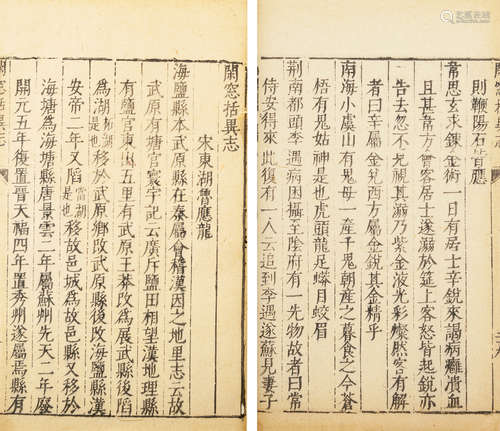 閒窓括異志
宋東湖魯應龍
海鹽縣本武原縣在秦屬會稽漢因之地里志云故
武原有鹽官寰宇記云廣斥鹽田相望漢地理縣
有鹽官東山五里有武原王莽改為展武縣後䧟
為湖是也移於武原鄉改武原縣後改海鹽縣漢
安帝二年又䧟當湖是也移故邑城為故邑縣又移於
海塘為海塘縣唐景雲二年屬蘇州先天二年廢
開元五年復置晉天福四年置秀州遂屬焉縣有
則鞭陽石皆應
常思玄求鍊金術一日有居士辛銳來謁病癬潰血
且甚常方會客居士遂溺於筵上客怒皆起銳亦
告去忽不見視其溺乃紫金液光彩燦然客有解
者曰辛屬金兌西方屬金銳其金精乎
南海小虞山有鬼母一產千鬼朝產之暮食之今蒼
梧有鬼姑神是也虎頭龍足蟒目蛟眉
荊南都頭李遇病困攝至陰府有一先物故者曰常
侍安得來此復有一人云追到李遇遂蘇見妻子